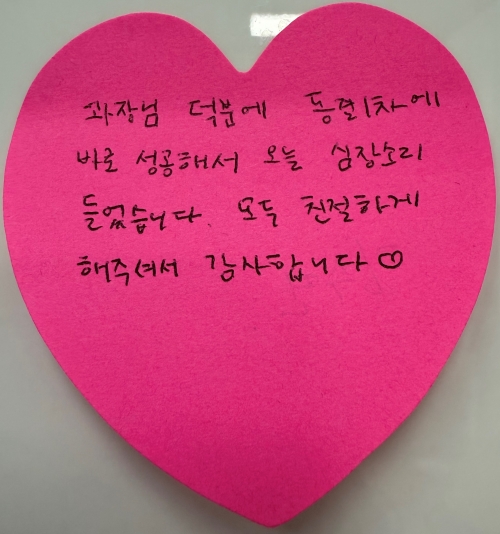 과장님 덕분에 동결1차에
바로 성공해서 오늘 심장소리
들었습니다. 모두 친절하게
해주셔서 감사합니다♡